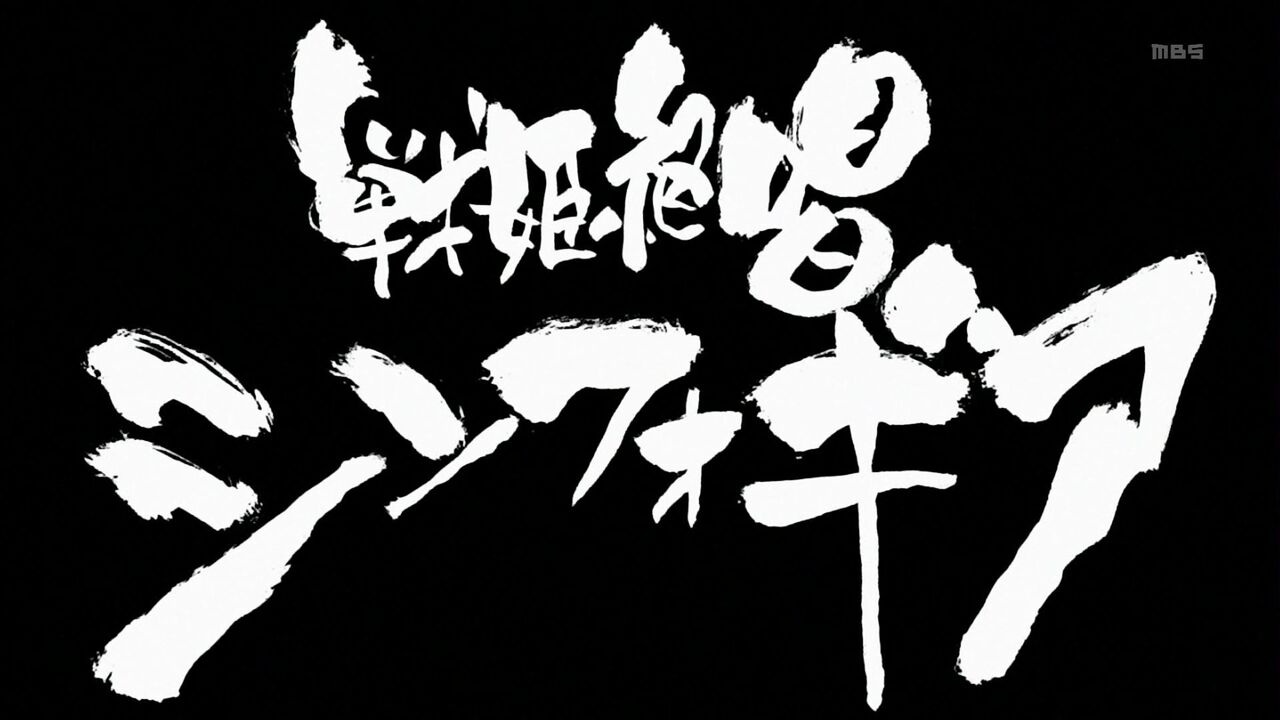 MBS
戦姫絶唱
シンフォギア